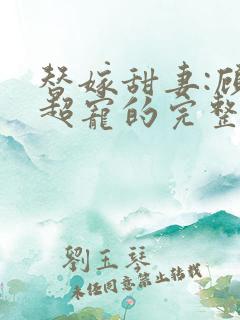 替嫁甜妻:顾
超宠的完整
劉玉琴
未经同意禁止转载